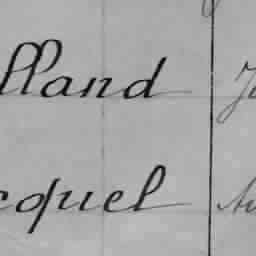 lland
cquel